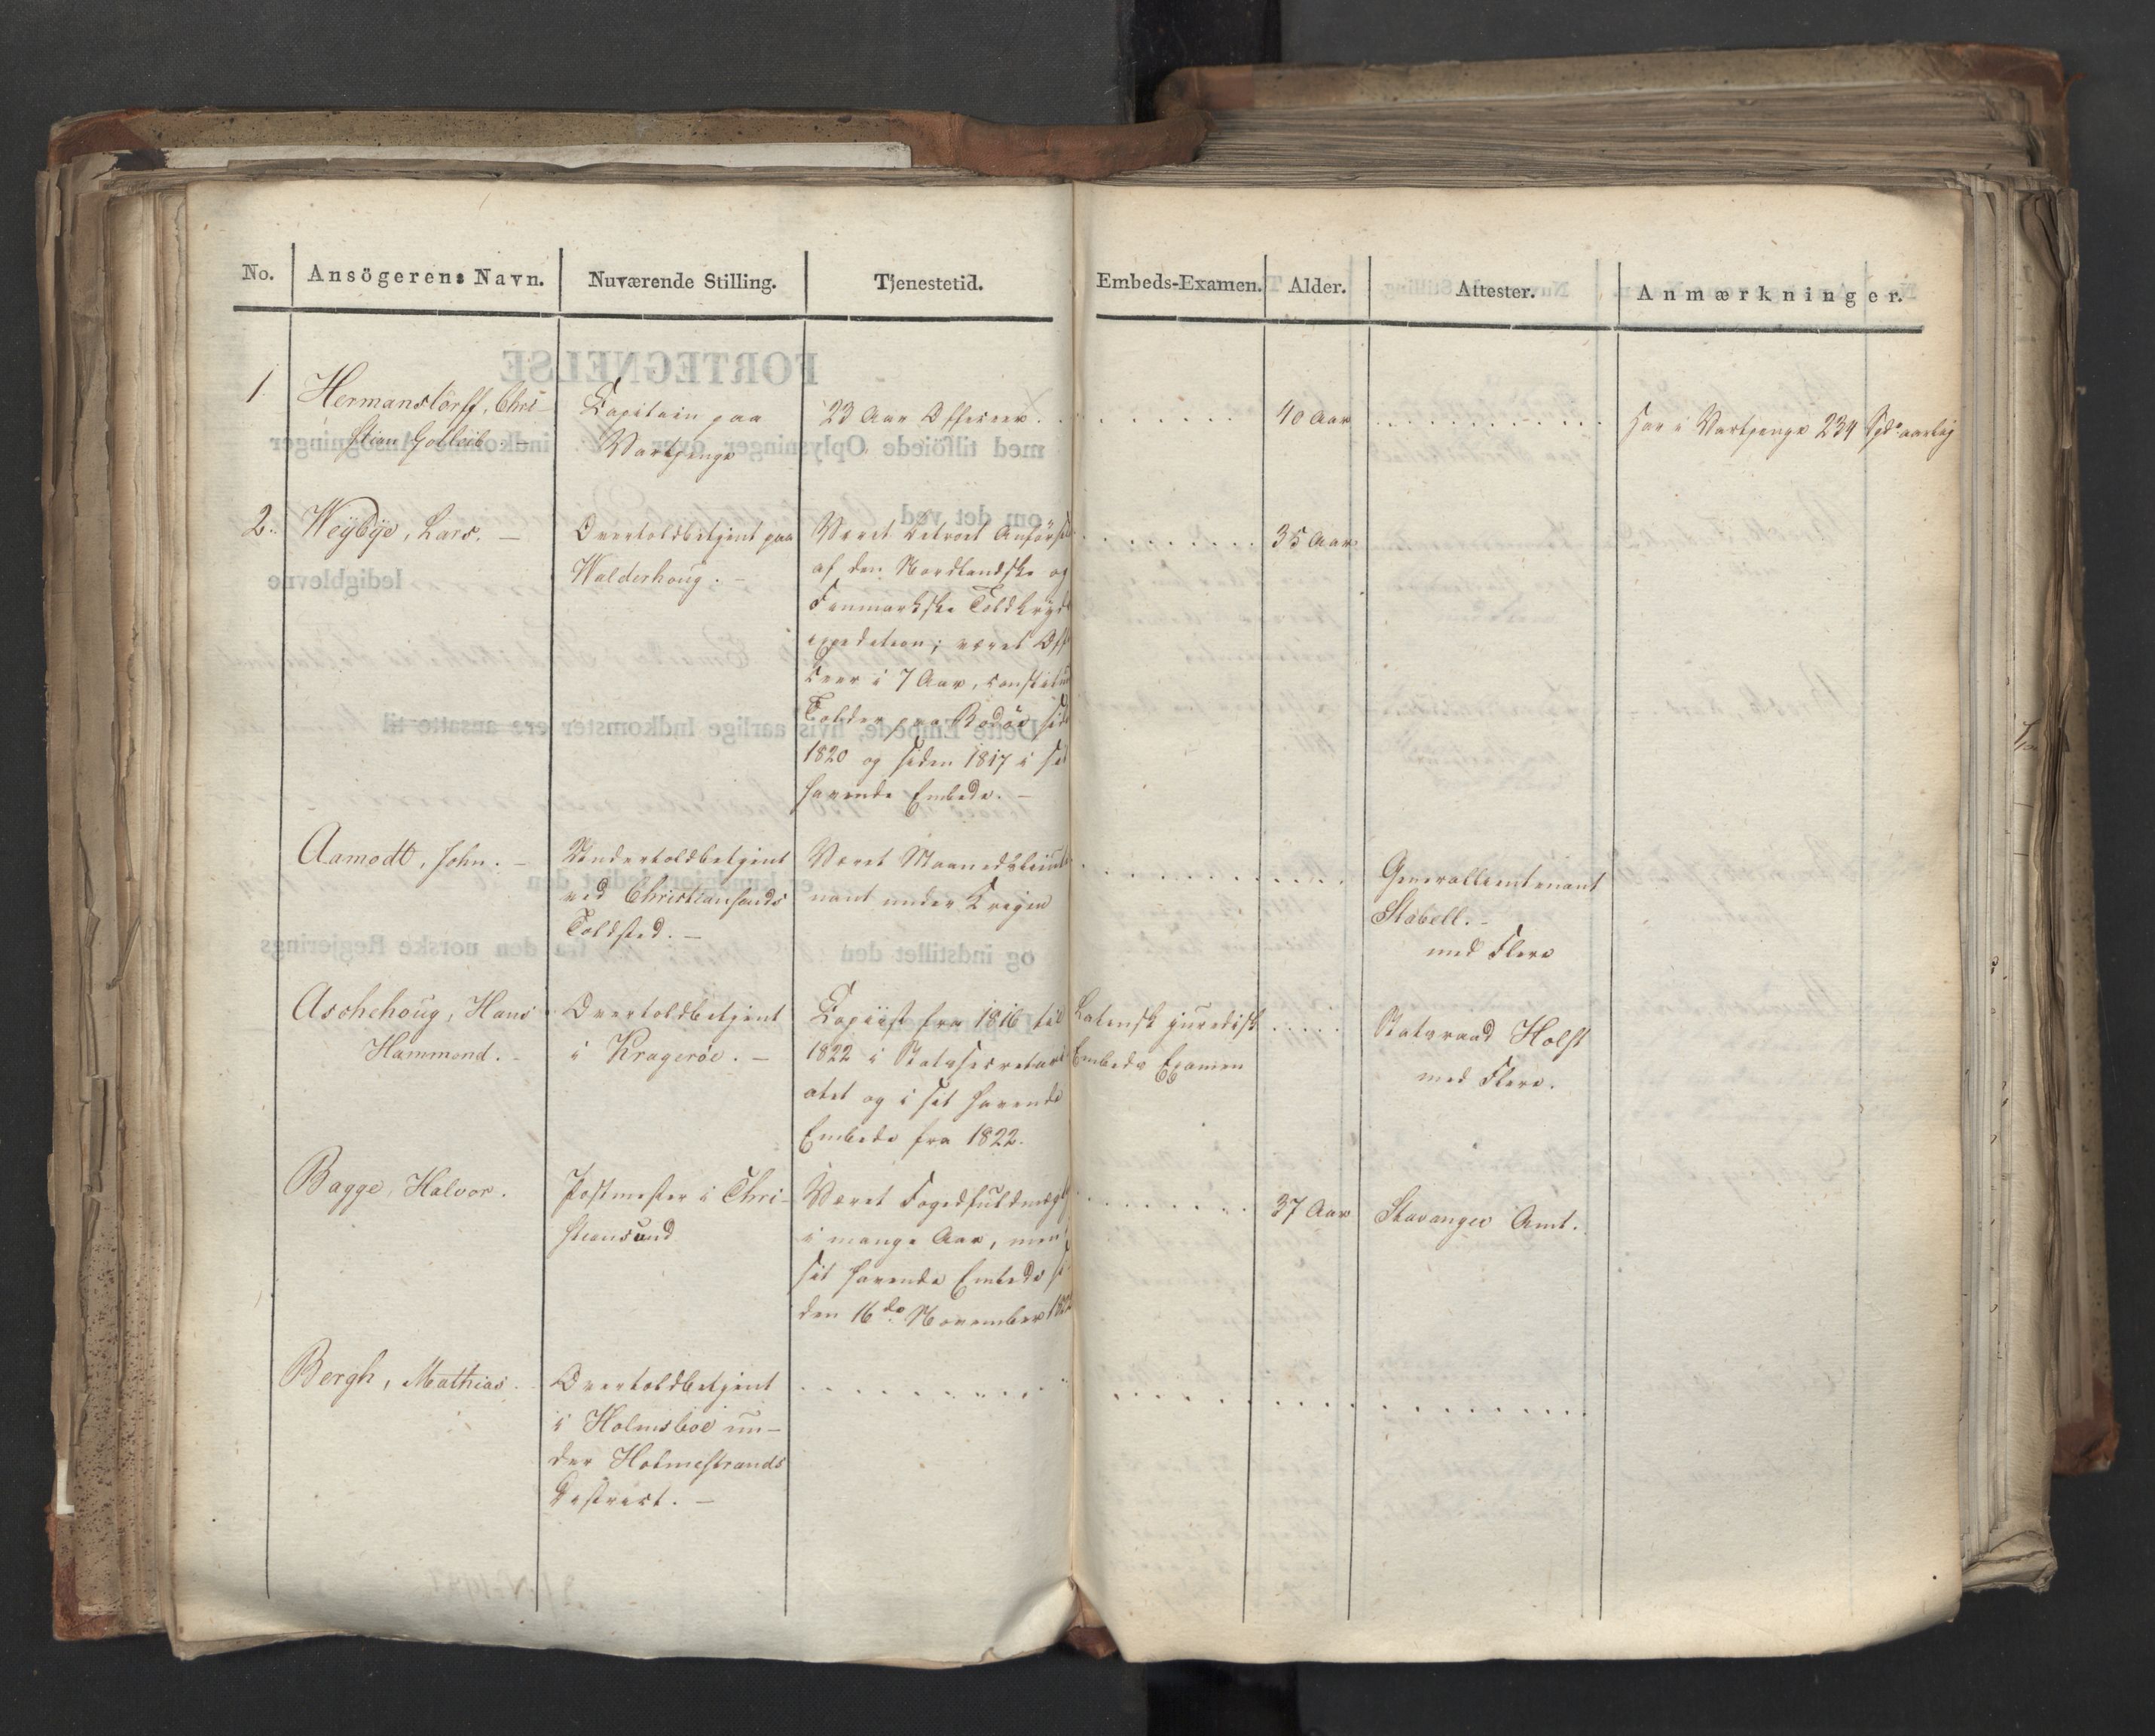 No. Ansögerens Navn. Nuværende Stilling. Tjenestetid. Embeds-Examen. Alder. Attester. Anmærkninger.
1 Hermanstörff, Chri-
stian Gotleib. -
Capitain paa
Vartpenge
23 Aar Officeer.
40 Aar
Har i Vartpenge 234 Spd aarlig
2. Weybye, Lars. -
Overtoldbetjent paa
Walderhoug. -
Været betroet Anförsel
af den Nordlandske og
Finmarkske Toldkryds
expedition; været Offi
ceer i 7 Aar, constitu
Tolder paa Bodöe sid
1820 og siden 1817 i sit
havende Embede. -
35 Aar
Aamodt, John. -
Undertoldbetjent
ved Christiansands
Toldsted. -
Været Maanedslieute
nant under Krigen
Generallieutenant
Stabell. -
med Flere
Aschehoug, Hans
Hammond. -
Overtoldbetjent
i Krageröe. -
Copiist fra 1816 til
1822 i Statssecretari
atet og i sit havende
Embede fra 1822.
Latinsk juridisk
Embeds Examen
Statsraad Holst
med Flere.
Bagge, Halvor.
Postmester i Chri-
stiansund
Været Fogedfuldmægt
i mange Aar, men
sit havende Embede si
den 16de November 182
37 Aar
Stavanger Amt.
Bergh, Mathias.
Overtoldbetjent
i Holmsboe un-
der Holmestrands
District. -